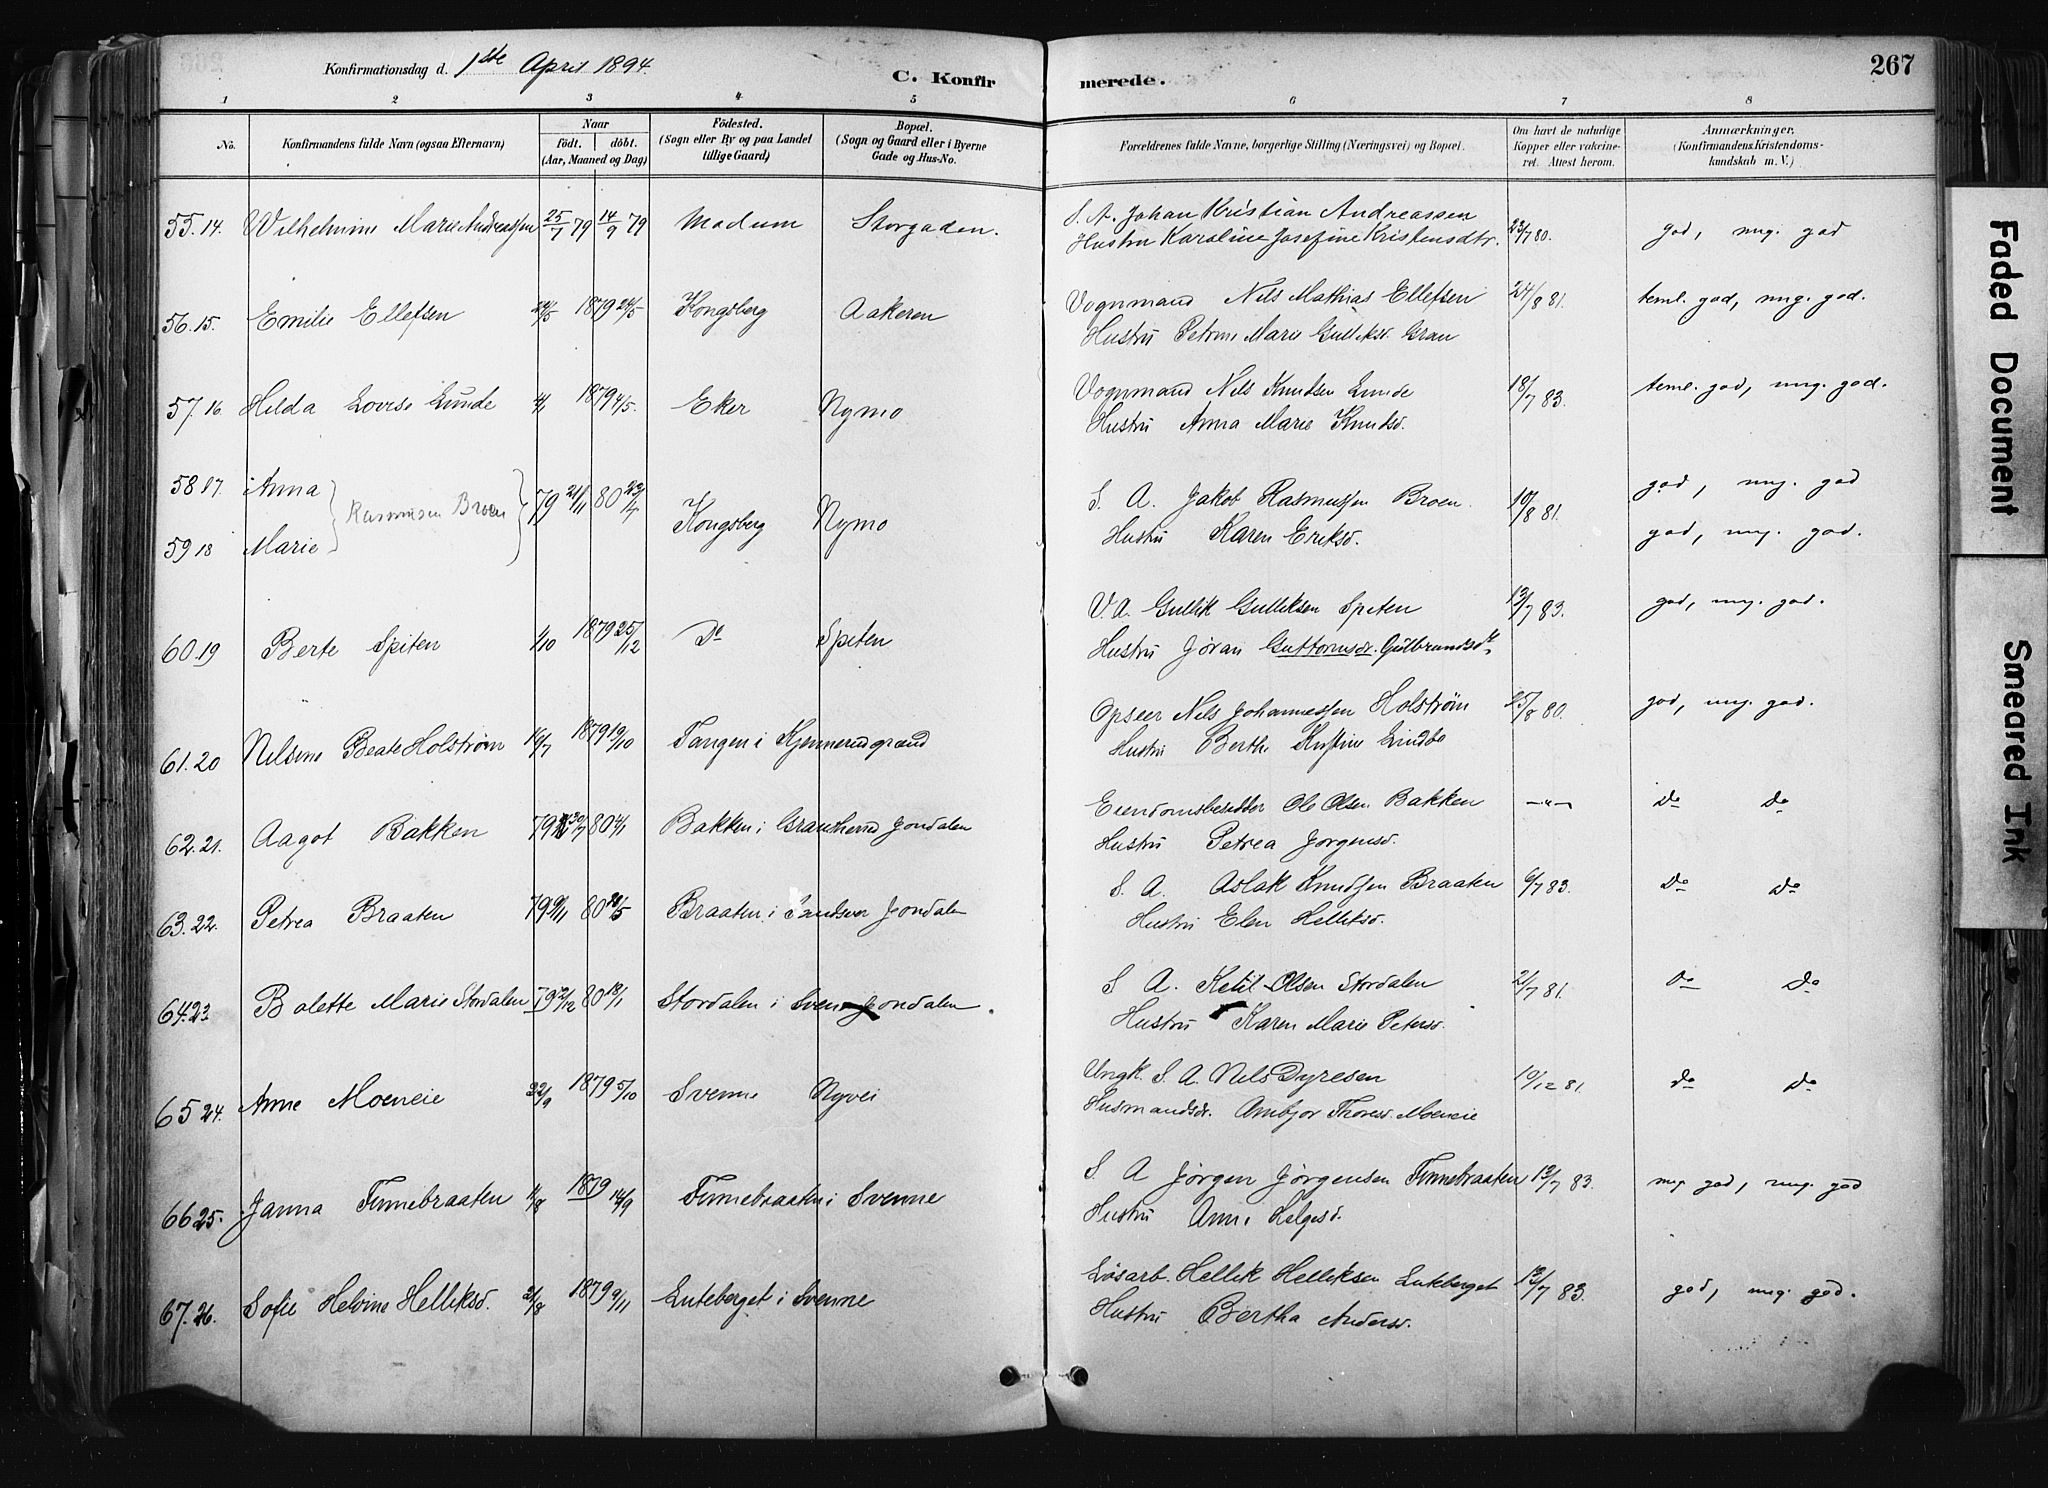 Konfirmationsdag d. 1ste April 1894.
C. Konfir merede. 267
1 2 3 4 5 6 7 8
No. Konfirmandens fulde Navn (ogsaa Efternavn) Naar födt. döbt. (Aar, Maaned og Dag) Födested. (Sogn eller By og paa Landet tillige Gaard) Bopæl. (Sogn og Gaard eller i Byerne Gade og Hus-No. Forældrenes fulde Navne, borgerlige Stilling (Næringsvei) og Bopæl. Om havt de naturlige Kopper eller vakcineret. Attest herom. Anmærkninger. (Konfirmandens Kristendomskundskab m. V.)
55.14. Wilhelmine Marie Andreassen 25/7 79 14/9 79 Modum Storgaden. S. A. Johan Kristian Andreassen 23/7 80. god, mg. god
Hustru Karoline Josefine Kristensdtr.
56.15. Emilie Ellefsen 1879 24/5 Kongsberg Aakeren Vognmand Nils Mathias Ellefsen 24/8 81. teml. god, mg. god.
Hustru Petrine Marie Gulliksd. Grau
57.16 Hilda Lovise Lunde 4/1 1879 4/5. Eker Nymo Vognmand Nils Knudsen Lunde 18/7 83. teml. god, mg. god.
Hustru Anna Marie Knudsd.
58 17. Anna Rasmussen Broen 79 21/11 80 Kongsberg Nymo S. A. Jakob Rasmussen Broen. 10/8 81. god, mg. god
59 18 Marie Hustru Karen Eriksd. god, mg. god.
60.19 Berte Spiten 1/10 1879 25/12 Do Spiten V. A. Gullik Gulliksen Spiten 13/7 83. god, mg. god.
Hustru Jøran Guttormsdr. Gulbrandsdt.
61.20 Nilsine Beate Holstrøm 16/7 1879 19/10 Tangen i Kjennerudgrænd Opseer Nils Johannessen Holstrøm 25/8 80. god, mg. god.
Hustru Berthe Kristine Lindbo
62.21. Aagot Bakken 79 80 4/1 Bakken i Gransherud Jondalen Eiendomsbesidder Ole Olsen Bakken —"— Do Do
Hustru Petrea Jørgensd.
63.22. Petrea Braaten 79 9/11 80 Braaten i Sandsver Jondalen S. A. Aslak Knudsen Braaten 6/7 83. Do Do
Hustru Elen Helliksd.
64.23. Bolette Marie Stordalen 79 80 18/1 Stordalen i Svene Jondalen. S. A. Ketil Olsen Stordalen 2/7 81. Do Do
Hustru Karen Marie Petersd.
65 24. Anne Moeneie 22/9 1879 5/10 Svenne Nyvei Ungk. S. A. Nils Dyresen 19/12 81. Do Do
Husmandsdr. Ambjør Thoresd. Moeneie
66 25. Janna Finnebraaten 1879 14/9 Finnebraaten i Svenne S. A Jørgen Jørgensen Finnebraaten 13/7 83. mg god, mg. god
Hustru Anne Helgesd.
67.26. Sofie Helvine Helliksd. 21/8 1879 9/11 Luteberget i Svenne Løsarb. Hellik Helliksen Luteberget 13/7 83. god, mg. god.
Hustru Bertha Andersd.
Faded Document
Smeared Ink